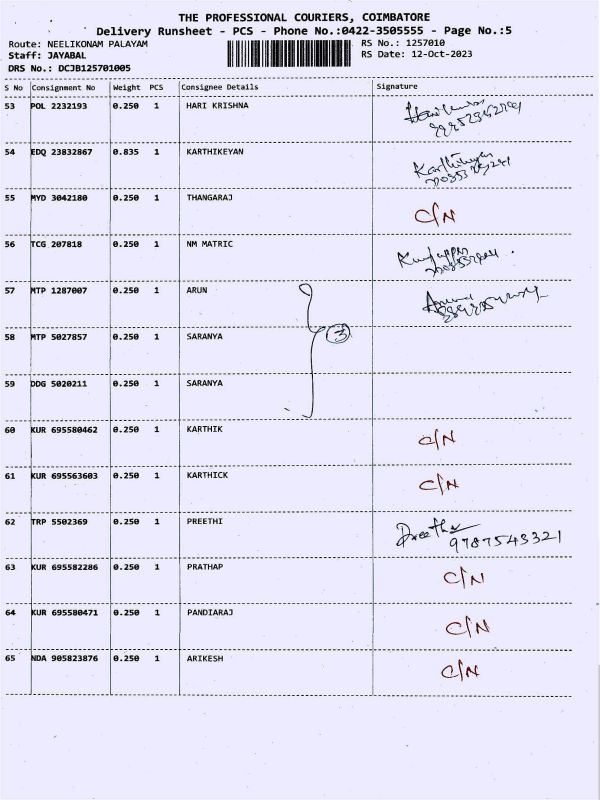 THE PROFESSIONAL COURIERS, COIMBATORE
Delivery Runsheet - PCS - Phone No.:0422-3505555 - Page No.:5
Route: NEELIKONAM PALAYAM RS No.: 1257010
Staff: JAYABAL RS Date: 12-Oct-2023
DRS No.: DCJB125701005
S No Consignment No Weight PCS Consignee Details Signature
53 POL 2232193 0.250 1 HARI KRISHNA
54 EDQ 23832867 0.835 1 KARTHIKEYAN Karthikeyan
55 MYD 3042180 0.250 1 THANGARAJ C/N
56 TCG 207818 0.250 1 NM MATRIC
57 MTP 1287007 0.250 1 ARUN
58 MTP 5027857 0.250 1 SARANYA 3
59 DDG 5020211 0.250 1 SARANYA
60 KUR 695580462 0.250 1 KARTHIK C/N
61 KUR 695563603 0.250 1 KARTHICK C/N
62 TRP 5502369 0.250 1 PREETHI Preethi
9787543321
63 KUR 695582286 0.250 1 PRATHAP C/N
64 KUR 695580471 0.250 1 PANDIARAJ C/N
65 NDA 905823876 0.250 1 ARIKESH C/N